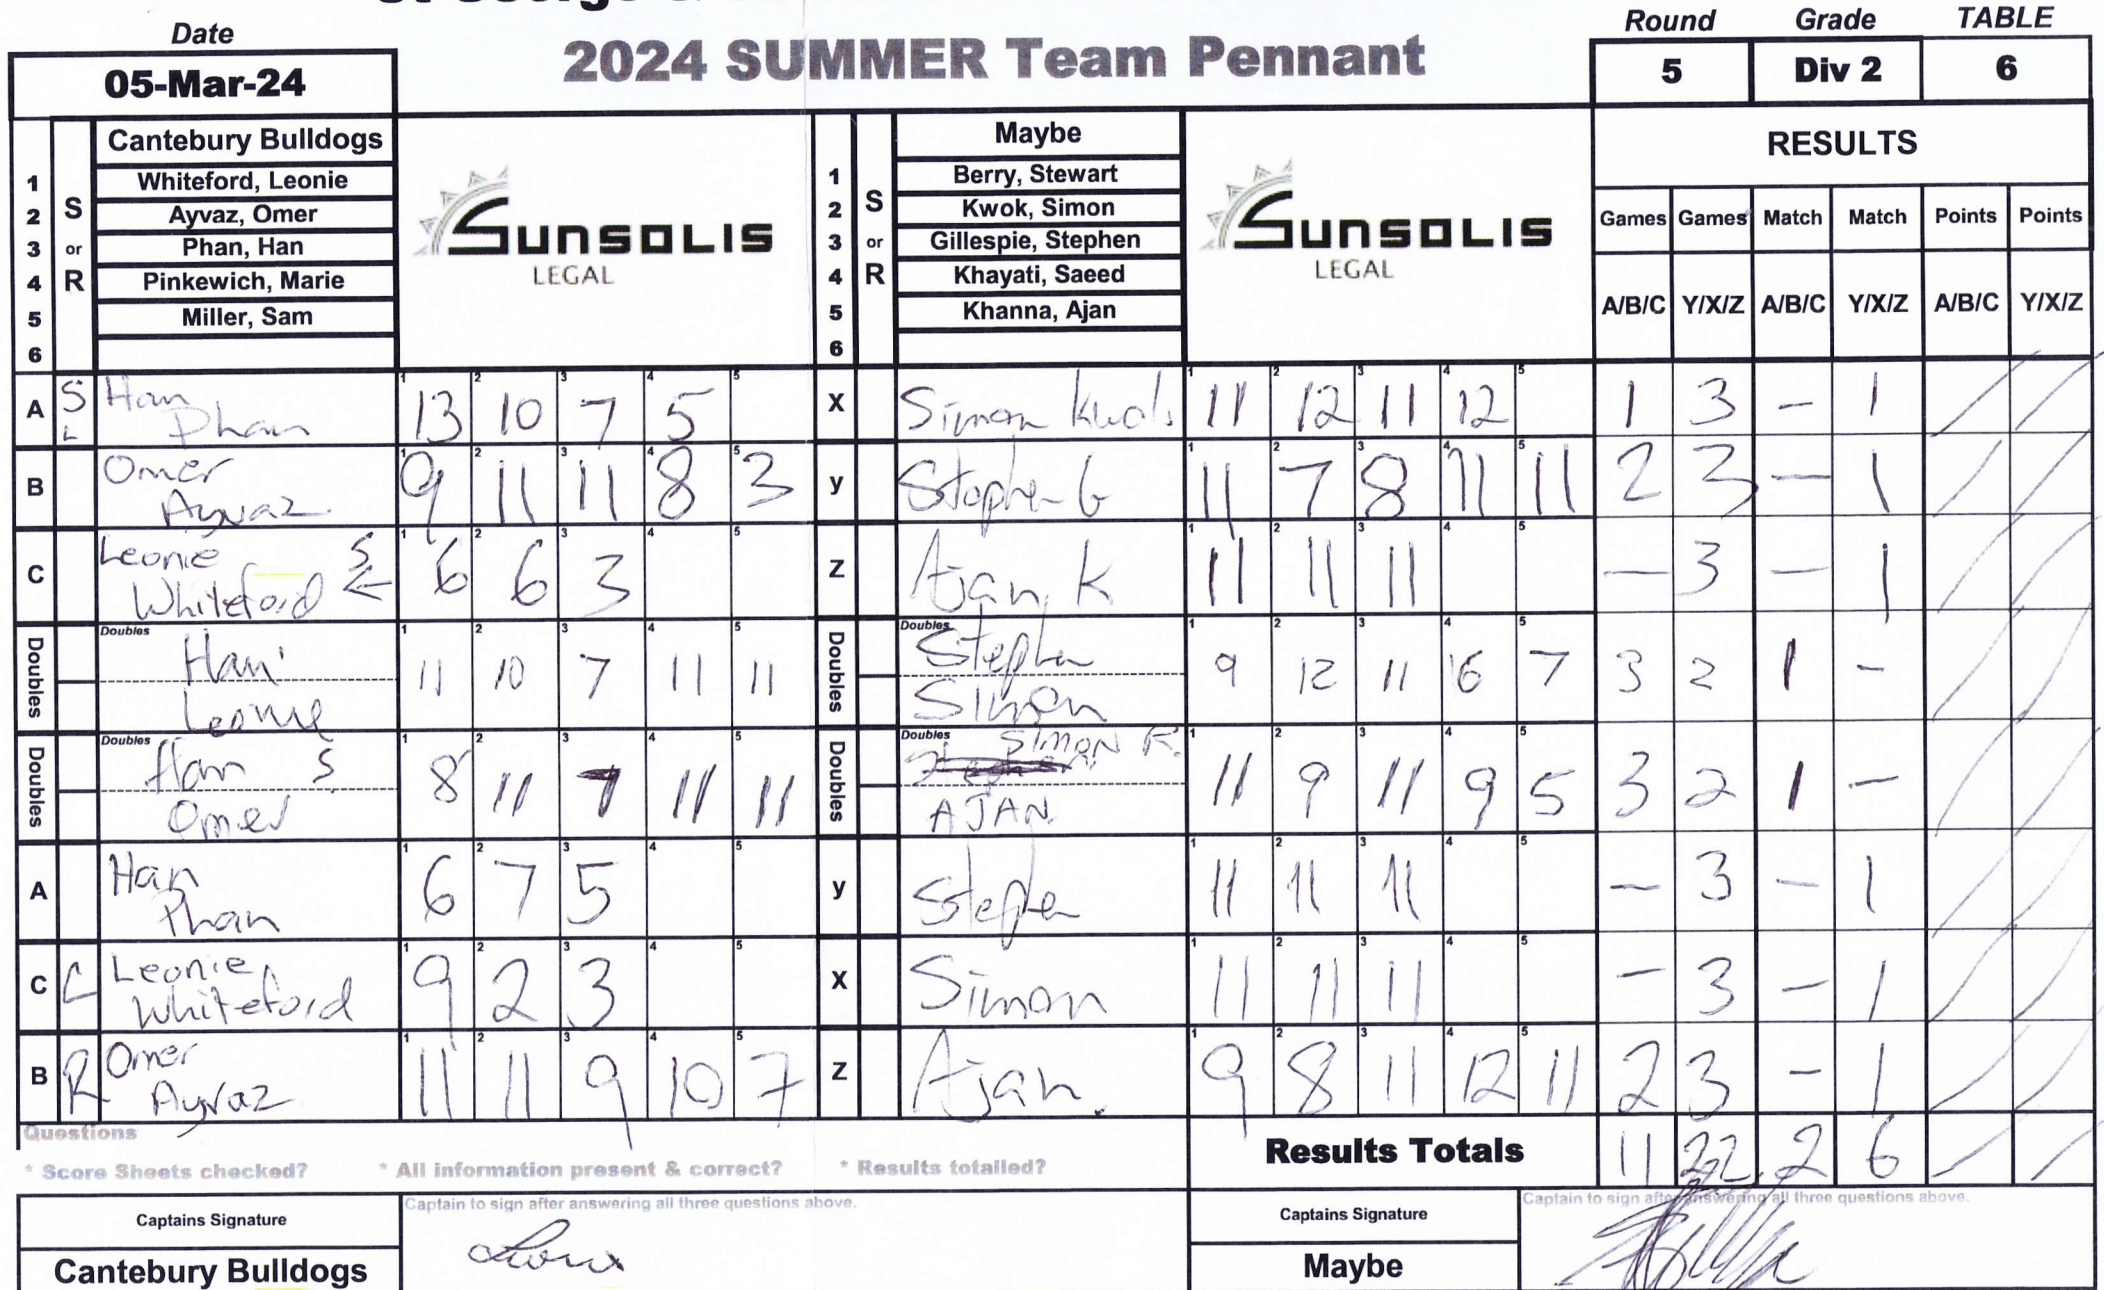 Date
05-Mar-24
2024 SUMMER Team Pennant
Round Grade TABLE
5 Div 2 6
Cantebury Bulldogs
1 Whiteford, Leonie
2 S Ayvaz, Omer
3 or Phan, Han
4 R Pinkewich, Marie
5 Miller, Sam
6
SUNSOLIS
LEGAL
Maybe
1 Berry, Stewart
2 S Kwok, Simon
3 or Gillespie, Stephen
4 R Khayati, Saeed
5 Khanna, Ajan
6
SUNSOLIS
LEGAL
RESULTS
Games Games Match Match Points Points
A/B/C Y/X/Z A/B/C Y/X/Z A/B/C Y/X/Z
A S L Han Phan 13 10 7 5 X Simon 11 12 11 12 1 3 - 1
B Omer Ayvaz 9 11 11 8 3 y Stephen G 11 7 8 11 11 2 3 - 1
C Leonie Whiteford S 6 6 3 Z Ajan K 11 11 11 - 3 - 1
Doubles Doubles Han Leonie 11 10 7 11 11 Doubles Doubles Stephen Simon 9 12 11 7 3 2 1 -
Doubles Doubles Han S Omer 8 11 7 11 11 Doubles Doubles SIMON AJAN 11 9 11 9 5 3 2 1 -
A Han Phan 6 7 5 y Stephen 11 11 11 - 3 - 1
C L Leonie Whiteford 9 2 3 X Simon 11 11 11 - 3 - 1
B R Omer Ayvaz 11 11 9 10 7 Z Ajan. 9 8 11 12 11 2 3 - 1
Questions
* Score Sheets checked? * All information present & correct? * Results totalled?
Results Totals 11 22 2 6
Captains Signature
Captain to sign after answering all three questions above.
Cantebury Bulldogs
Captains Signature
Captain to sign after answering all three questions above.
Maybe